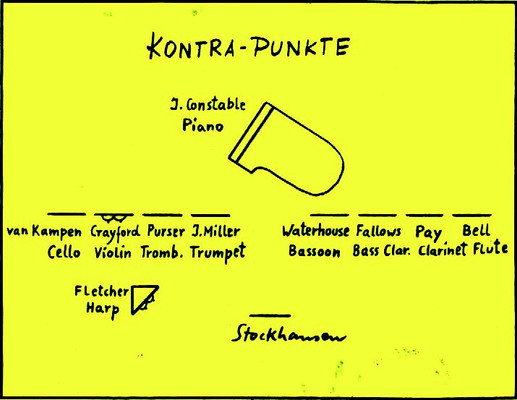 KONTRA-PUNKTE
J. Constable
Piano
van Kampen Grayford Purser J. Miller Waterhouse Fallows Pay Bell
Cello Violin Tromb. Trumpet Bassoon Bass Clar. Clarinet Flute
Fletcher
Harp
Stockhausen